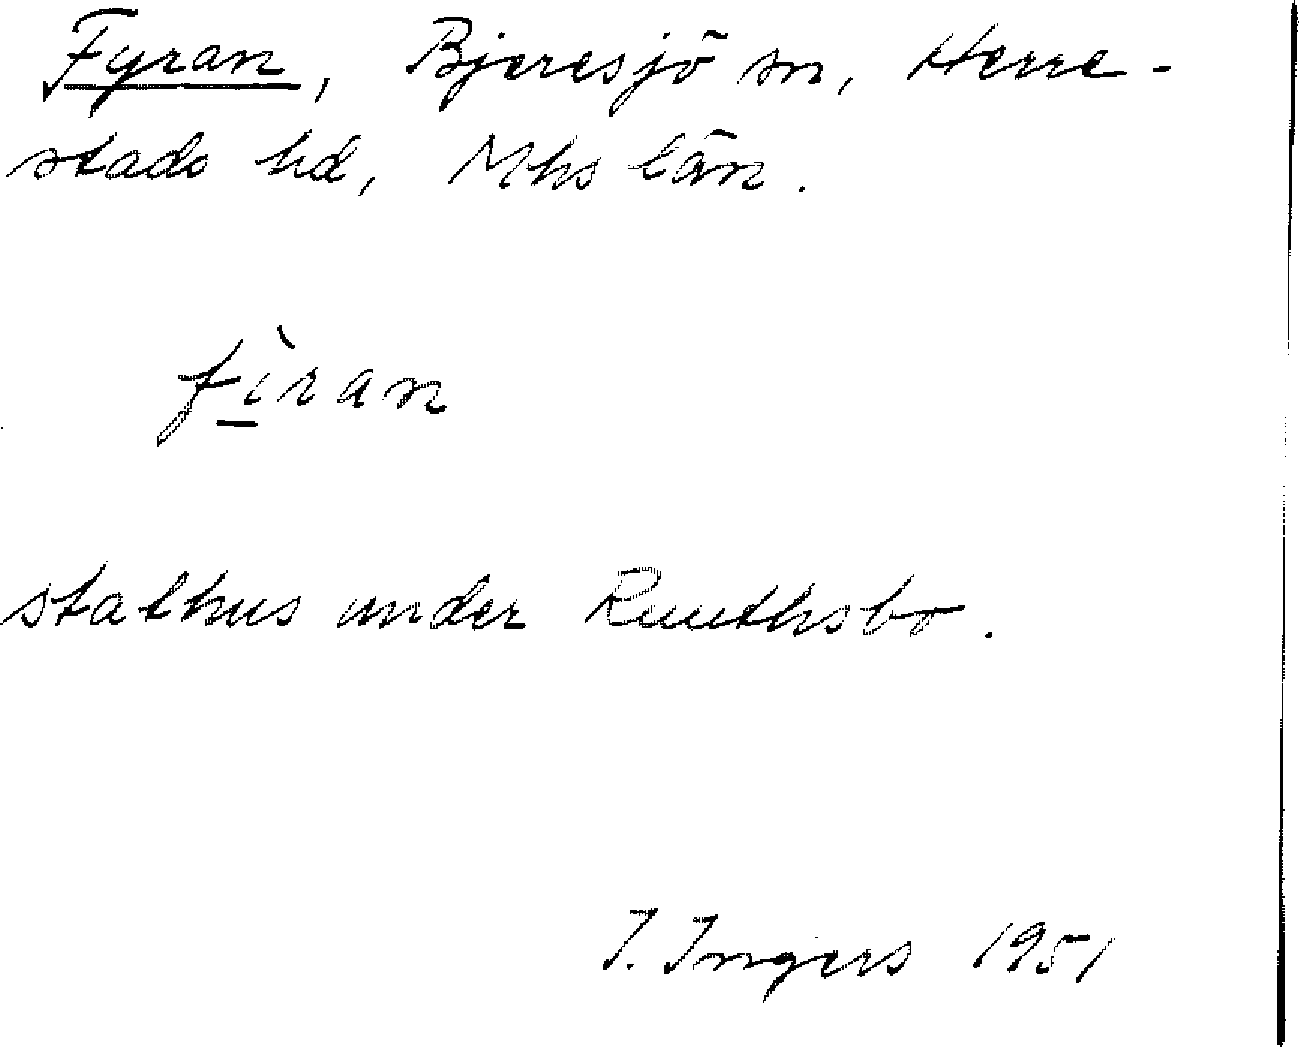 Fyran, Bjeresjö sn, Herre-
stads hd, Mhs län.
fì̠ran
stathus under Ruuthsbo.
I. Ingers 1951